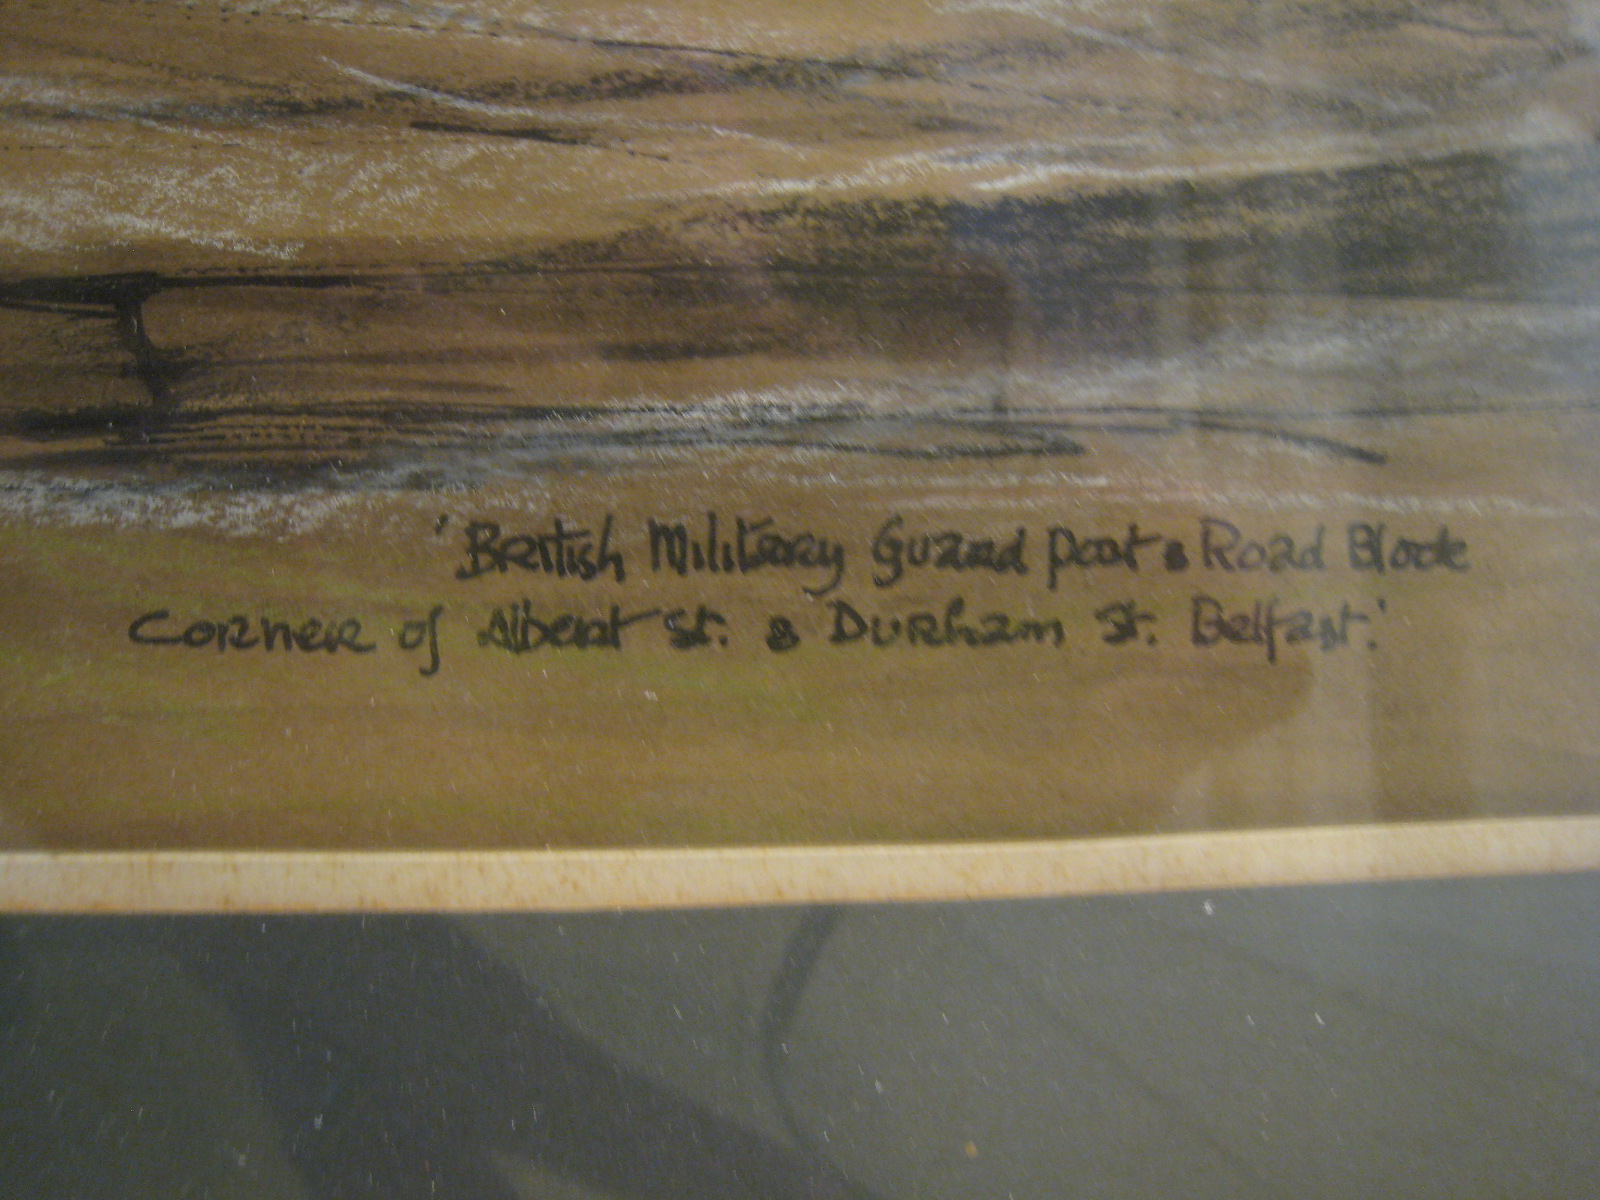 'British Military Guard post & Road Block
Corner of Albert St. & Durham St. Belfast.'